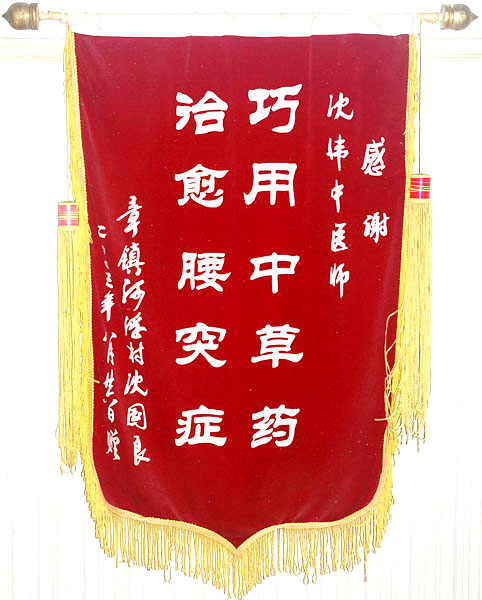 感谢
沈伟中医师
巧用中草药
治愈腰突症
章镇河浮村沈国良
二〇〇三年八月廿日赠